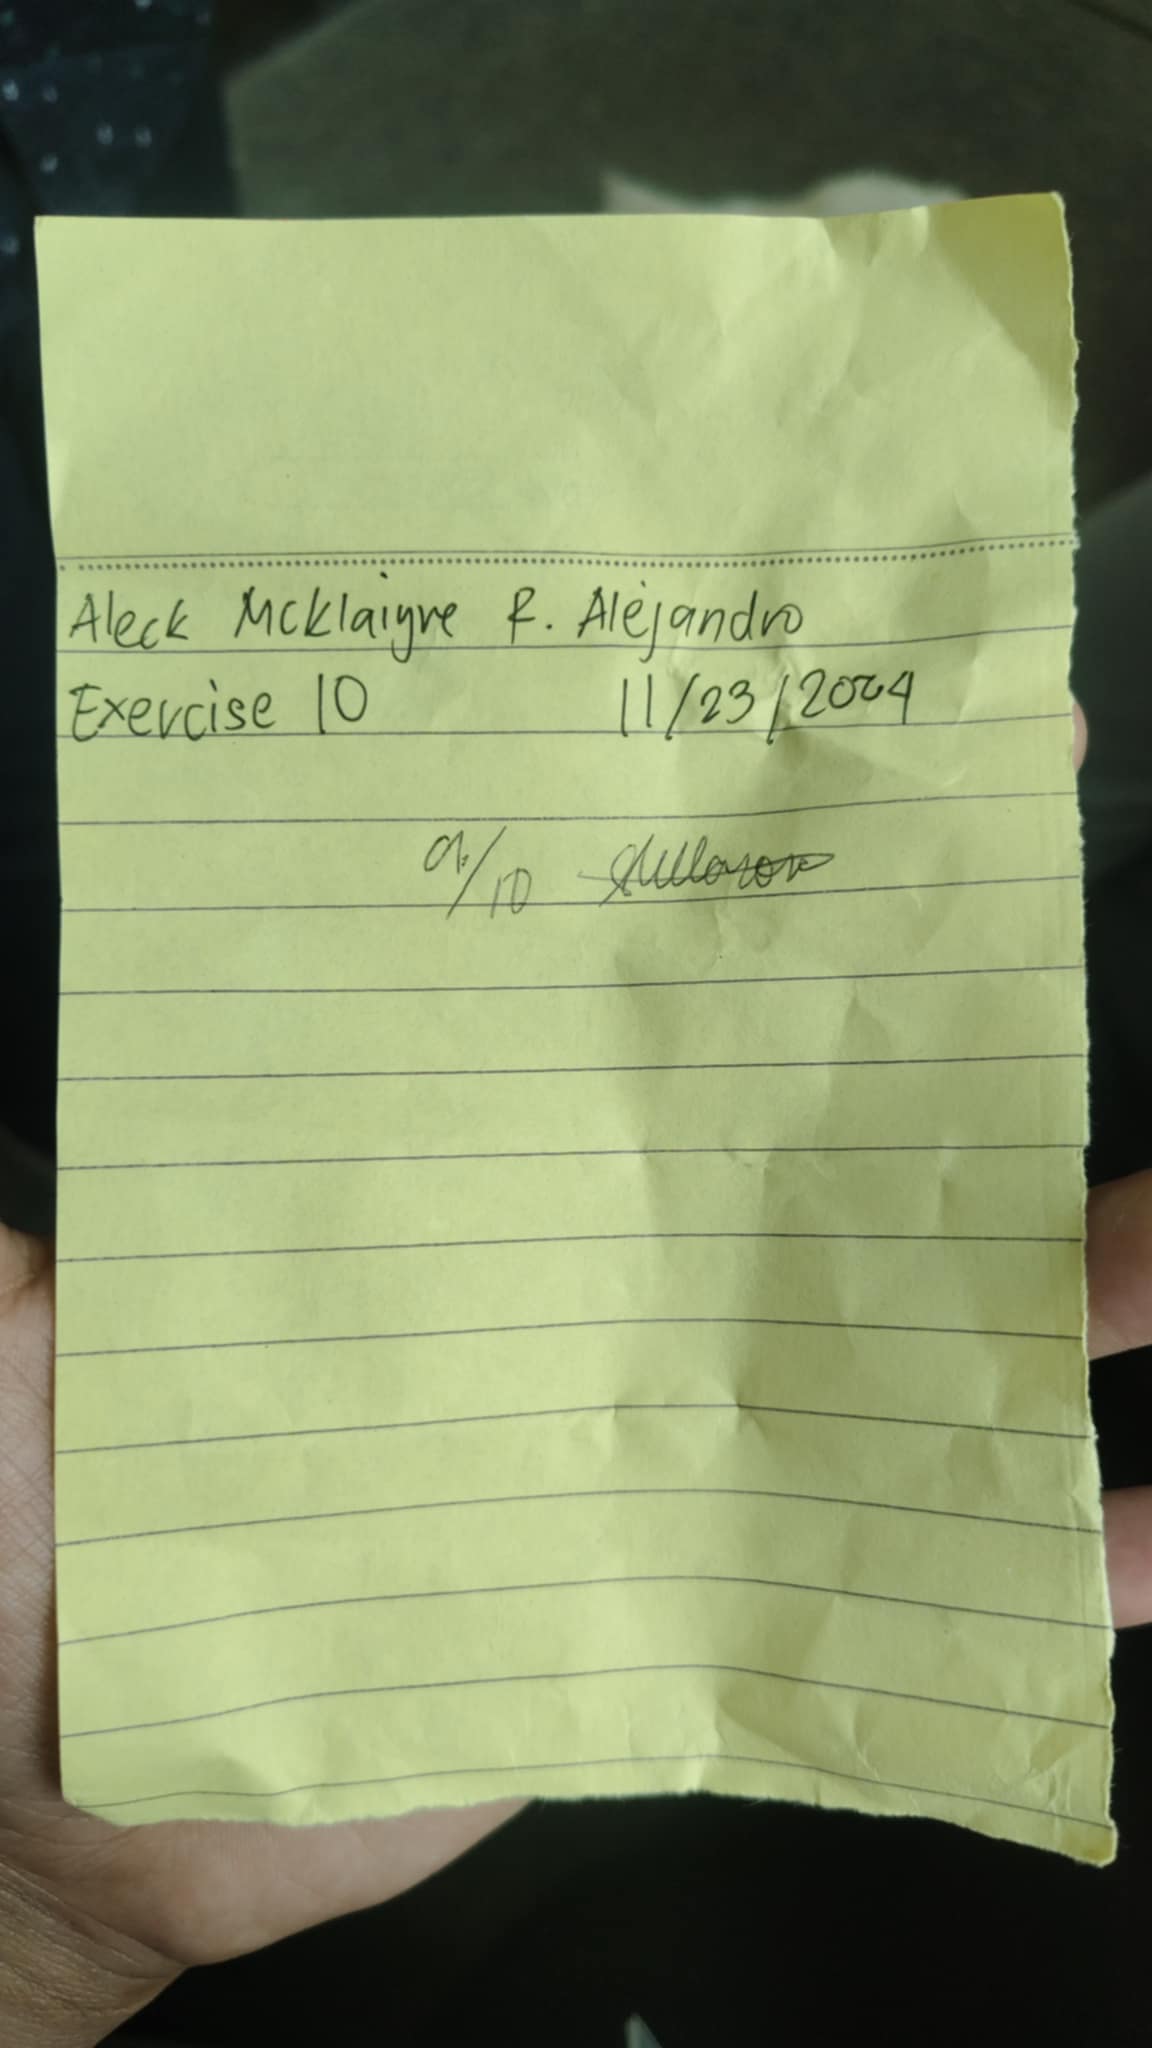 Aleck Mcklaigre R. Alejandro
Exercise 10 11/23/2024
9/10